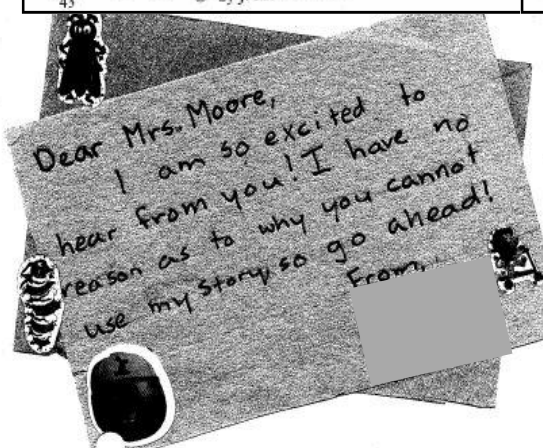 Dear Mrs. Moore,
I am so excited to
hear from you! I have no
reason as to why you cannot
use my story, so go ahead!
From,